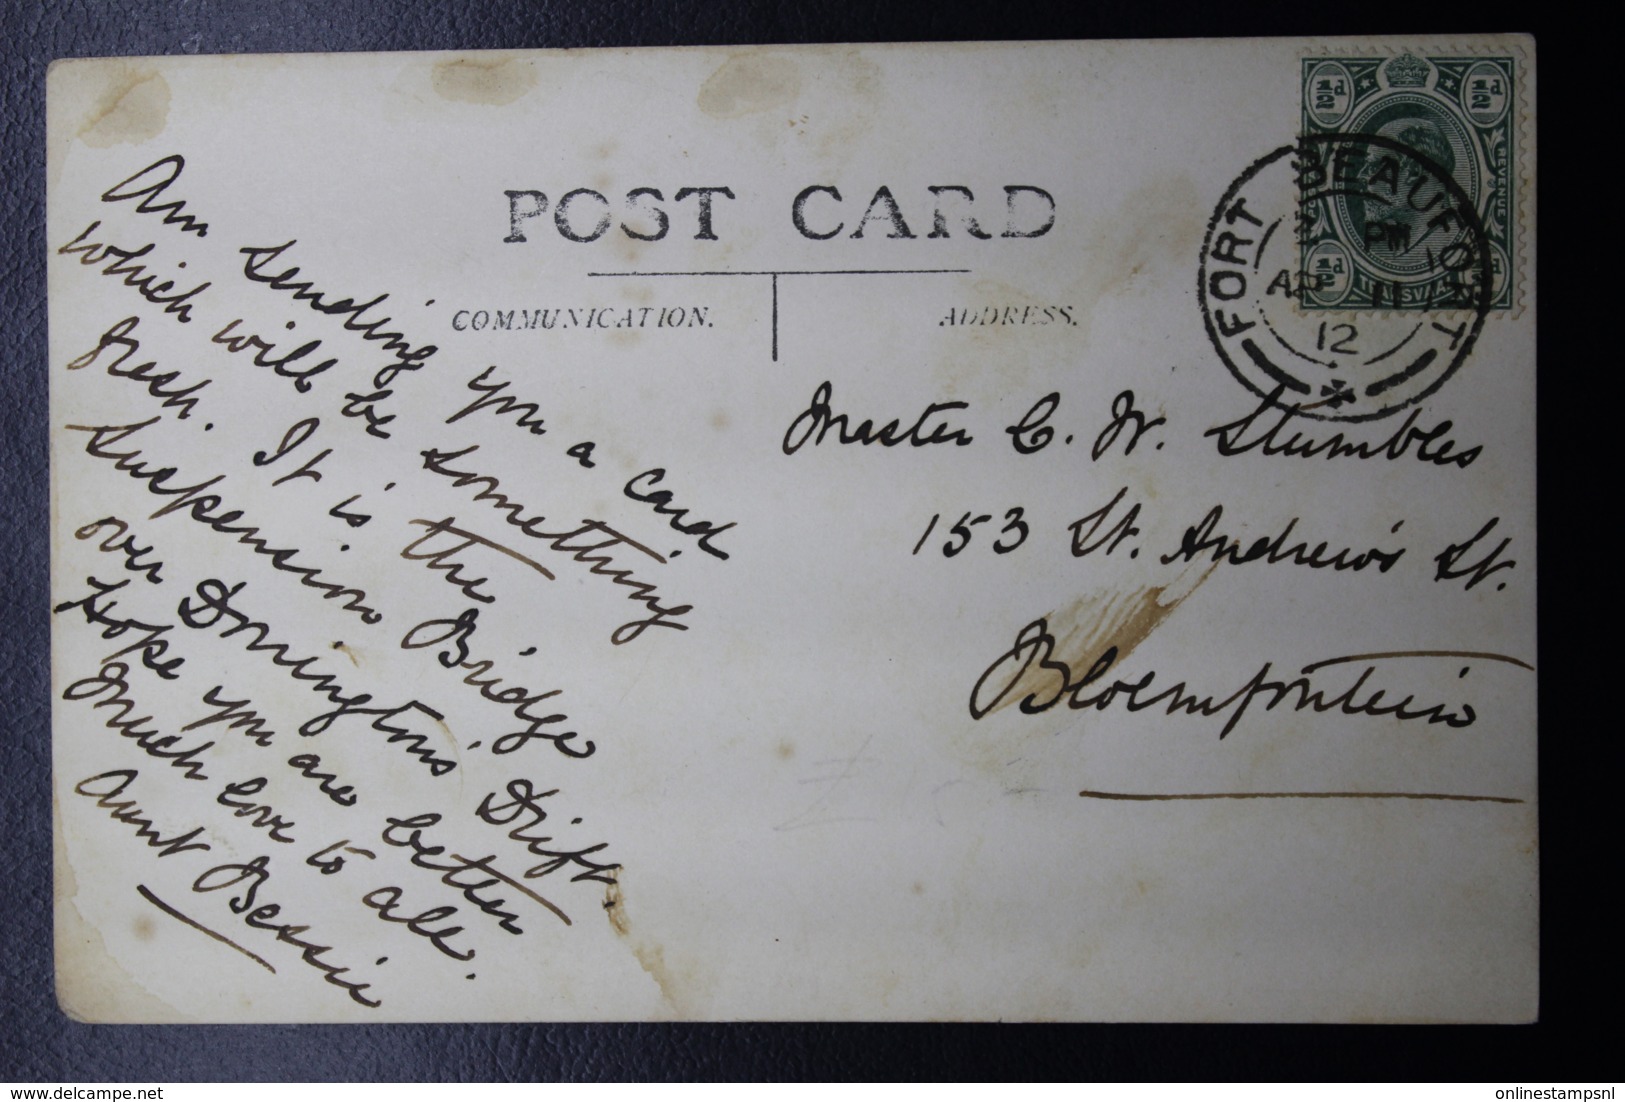 POST CARD
COMMUNICATION.
ADDRESS.
Am sending you a card
which will be something
fresh. It is the
Suspension Bridge
over Dorrington's Drift.
Hope you are better
Much love to all.
Aunt Bessie
Master C. W. Stumbles
153 St. Andrew's St.
Bloemfontein
½d ½d
REVENUE
½d
TRANSVAAL
FORT BEAUFORT
PM
AP 11
12
onlinestampsnl